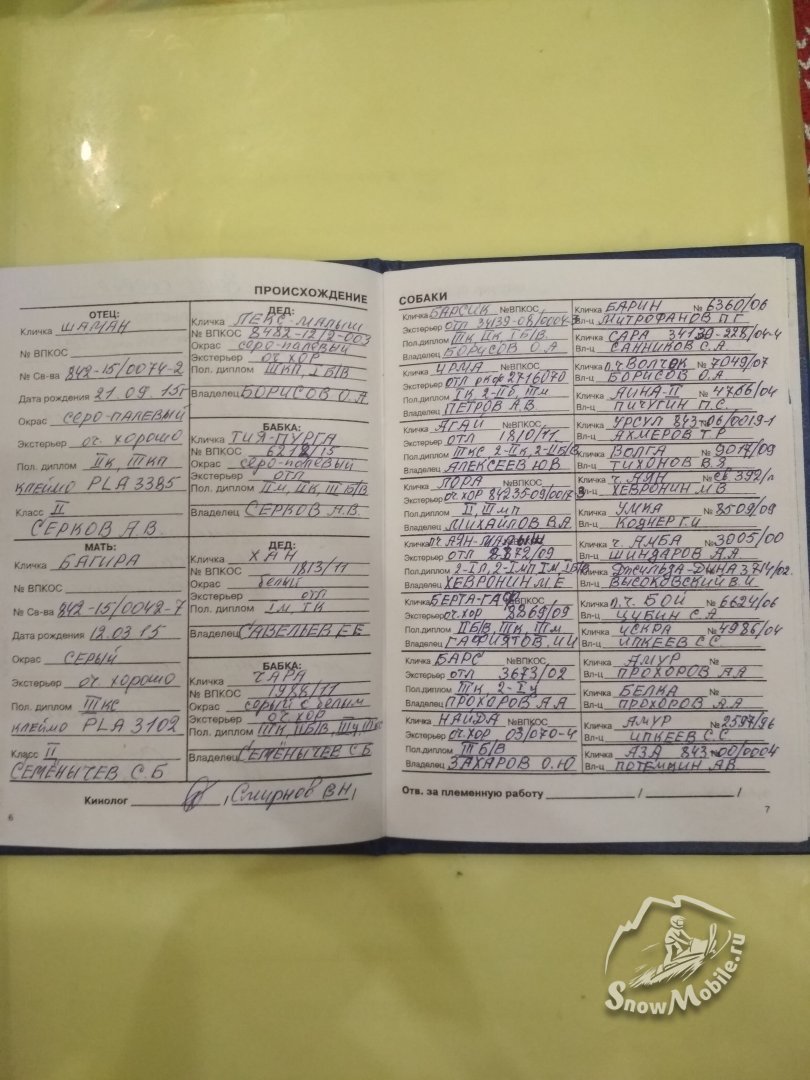 ПРОИСХОЖДЕНИЕ
ОТЕЦ:
Кличка ШАМАН
№ ВПКОС
№ Св-ва 842-15/0074-2
Дата рождения 21.09.15г
Окрас СЕРО-ПАЛЕВЫЙ
Экстерьер оч. хорошо
Пол. диплом IIк, IIIкп
КЛЕЙМО PLA 3385
Класс II
СЕРКОВ А.В.
ДЕД:
Кличка ПЕКС-МАЛЫШ
№ ВПКОС 8482-12/2-003
Окрас серо-палевый
Экстерьер оч. ХОР
Пол. диплом IIIКП, IБ/В
Владелец БОРИСОВ О.А.
БАБКА:
Кличка ТИЯ-ПУРГА
№ ВПКОС 6212/15
Окрас серо-палевый
Экстерьер отл
Пол. диплом IIм, IIк, III Б/В
Владелец СЕРКОВ А.В.
МАТЬ:
Кличка БАГИРА
№ ВПКОС
№ Св-ва 842-15/0042-7
Дата рождения 12.03.15
Окрас СЕРЫЙ
Экстерьер оч. хорошо
Пол. диплом IIIкс
КЛЕЙМО PLA 3102
Класс II
СЕМЁНЫЧЕВ С.Б
ДЕД:
Кличка ХАН
№ ВПКОС 1813/11
Окрас белый
Экстерьер отл
Пол. диплом Iм, IК
Владелец САВЕЛЬЕВ Е.Е
БАБКА:
Кличка ЧАРА
№ ВПКОС 1988/11
Окрас серый с белым
Экстерьер оч. ХОР
Пол. диплом IIIк, IIБ/В,
Владелец СЕМЁНЫЧЕВ С.Б
Кинолог , Смирнов ВН,
6
СОБАКИ
Кличка БАРСИК №ВПКОС
Экстерьер ОТЛ 34139-08/0004-3
Пол.диплом IIIк, IIк, IБ/В
Владелец БОРИСОВ О.А
Кличка БАРИН № 6360/06
Вл-ц МИТРОФАНОВ П.Г
Кличка САРА
Вл-ц САННИКОВ С.А
Кличка УРМА
Экстерьер ОТЛ ркф 2716070
Пол.диплом IК 2-IIБ, IIм
Владелец ПЕТРОВ А.В
п.ч ВОЛЧОК № 7049/07
Вл-ц БОРИСОВ О.А
Кличка АЙНА-П № 4766/04
Вл-ц ПИЧУГИН П.С.
Кличка АГАЙ
Экстерьер ОТЛ 1810/11
Пол.диплом IIIКС 2-IIк, 2-IIБ/В
Владелец АЛЕКСЕЕВ Ю.В
Кличка УРСУЛ 843 № 06/0019-1
Вл-ц АХМЕРОВ Т.Р
Кличка ВОЛГА № 9017/09
Вл-ц ТИХОНОВ В.З
Кличка ЛОРА
Экстерьер оч.хор 84235-09/0017-3
Пол.диплом II, IIIмп
Владелец МИХАЙЛОВ В.А
Кличка ч. АЯН № св.392/л
Вл-ц ХЕВРОНИН М.В
Кличка УМКА № 8509/09
Вл-ц КОДНЕР Г.И
Кличка п.ч. АЯН-МАЛЫШ
Экстерьер ОТЛ
Пол.диплом
Владелец ХЕВРОНИН М.Е
Кличка ч. АМБА № 3005/00
Вл-ц ШИНДАРОВ А.А
Кличка ДЖИЛЬДА-ДЫНА 3714/02.
Вл-ц ВЫСОКОВСКИЙ В.И
Кличка БЕРТА-ГАФ №ВПКОС
Экстерьер оч.хор 8869/09
Пол.диплом IIБ/В, IIIк, IIIм
Владелец ГАФИЯТОВ И.И
Кличка п.ч. БОЙ № 6624/06
Вл-ц ЦУБИН С.А
Кличка ИСКРА № 4986/04
Вл-ц ИПКЕЕВ С.С
Кличка БАРС №ВПКОС
Экстерьер отл 3673/02
Пол.диплом IIIк, 2-Iц
Владелец ПРОХОРОВ А.А
Кличка АМУР №
Вл-ц ПРОХОРОВ А.А
Кличка БЕЛКА №
Вл-ц ПРОХОРОВ А.А
Кличка НАЙДА №ВПКОС
Экстерьер оч.хор 03/070-4
Пол.диплом IIIБ/В
Владелец ЗАХАРОВ О.Ю
Кличка АМУР № 2597/96
Вл-ц ИПКЕЕВ С.С
Кличка АЗА 843 № 00/0004
Вл-ц ПОТЕМКИН А.В
Отв. за племенную работу / /
7
SnowMobile.ru